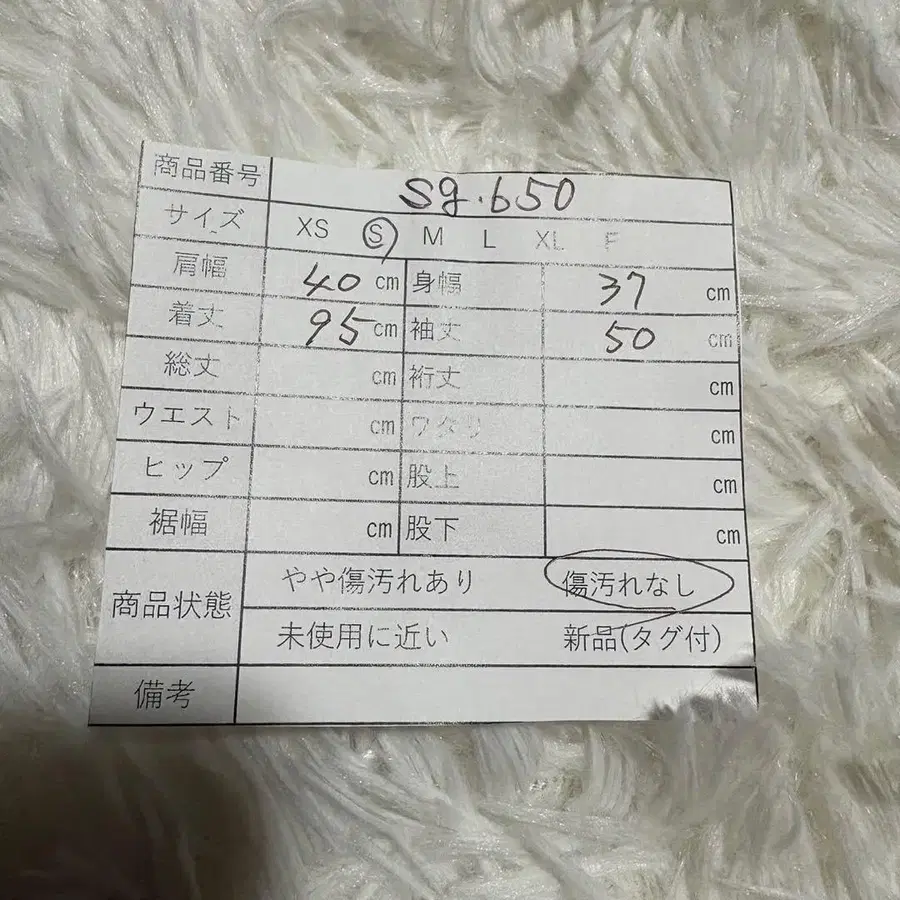 商品番号 sg.650
サイズ XS S M L XL F
肩幅 40 cm 身幅 37 cm
着丈 95 cm 袖丈 50 cm
総丈 cm 裄丈 cm
ウエスト cm ワタリ cm
ヒップ cm 股上 cm
裾幅 cm 股下 cm
商品状態 やや傷汚れあり 傷汚れなし
未使用に近い 新品(タグ付)
備考